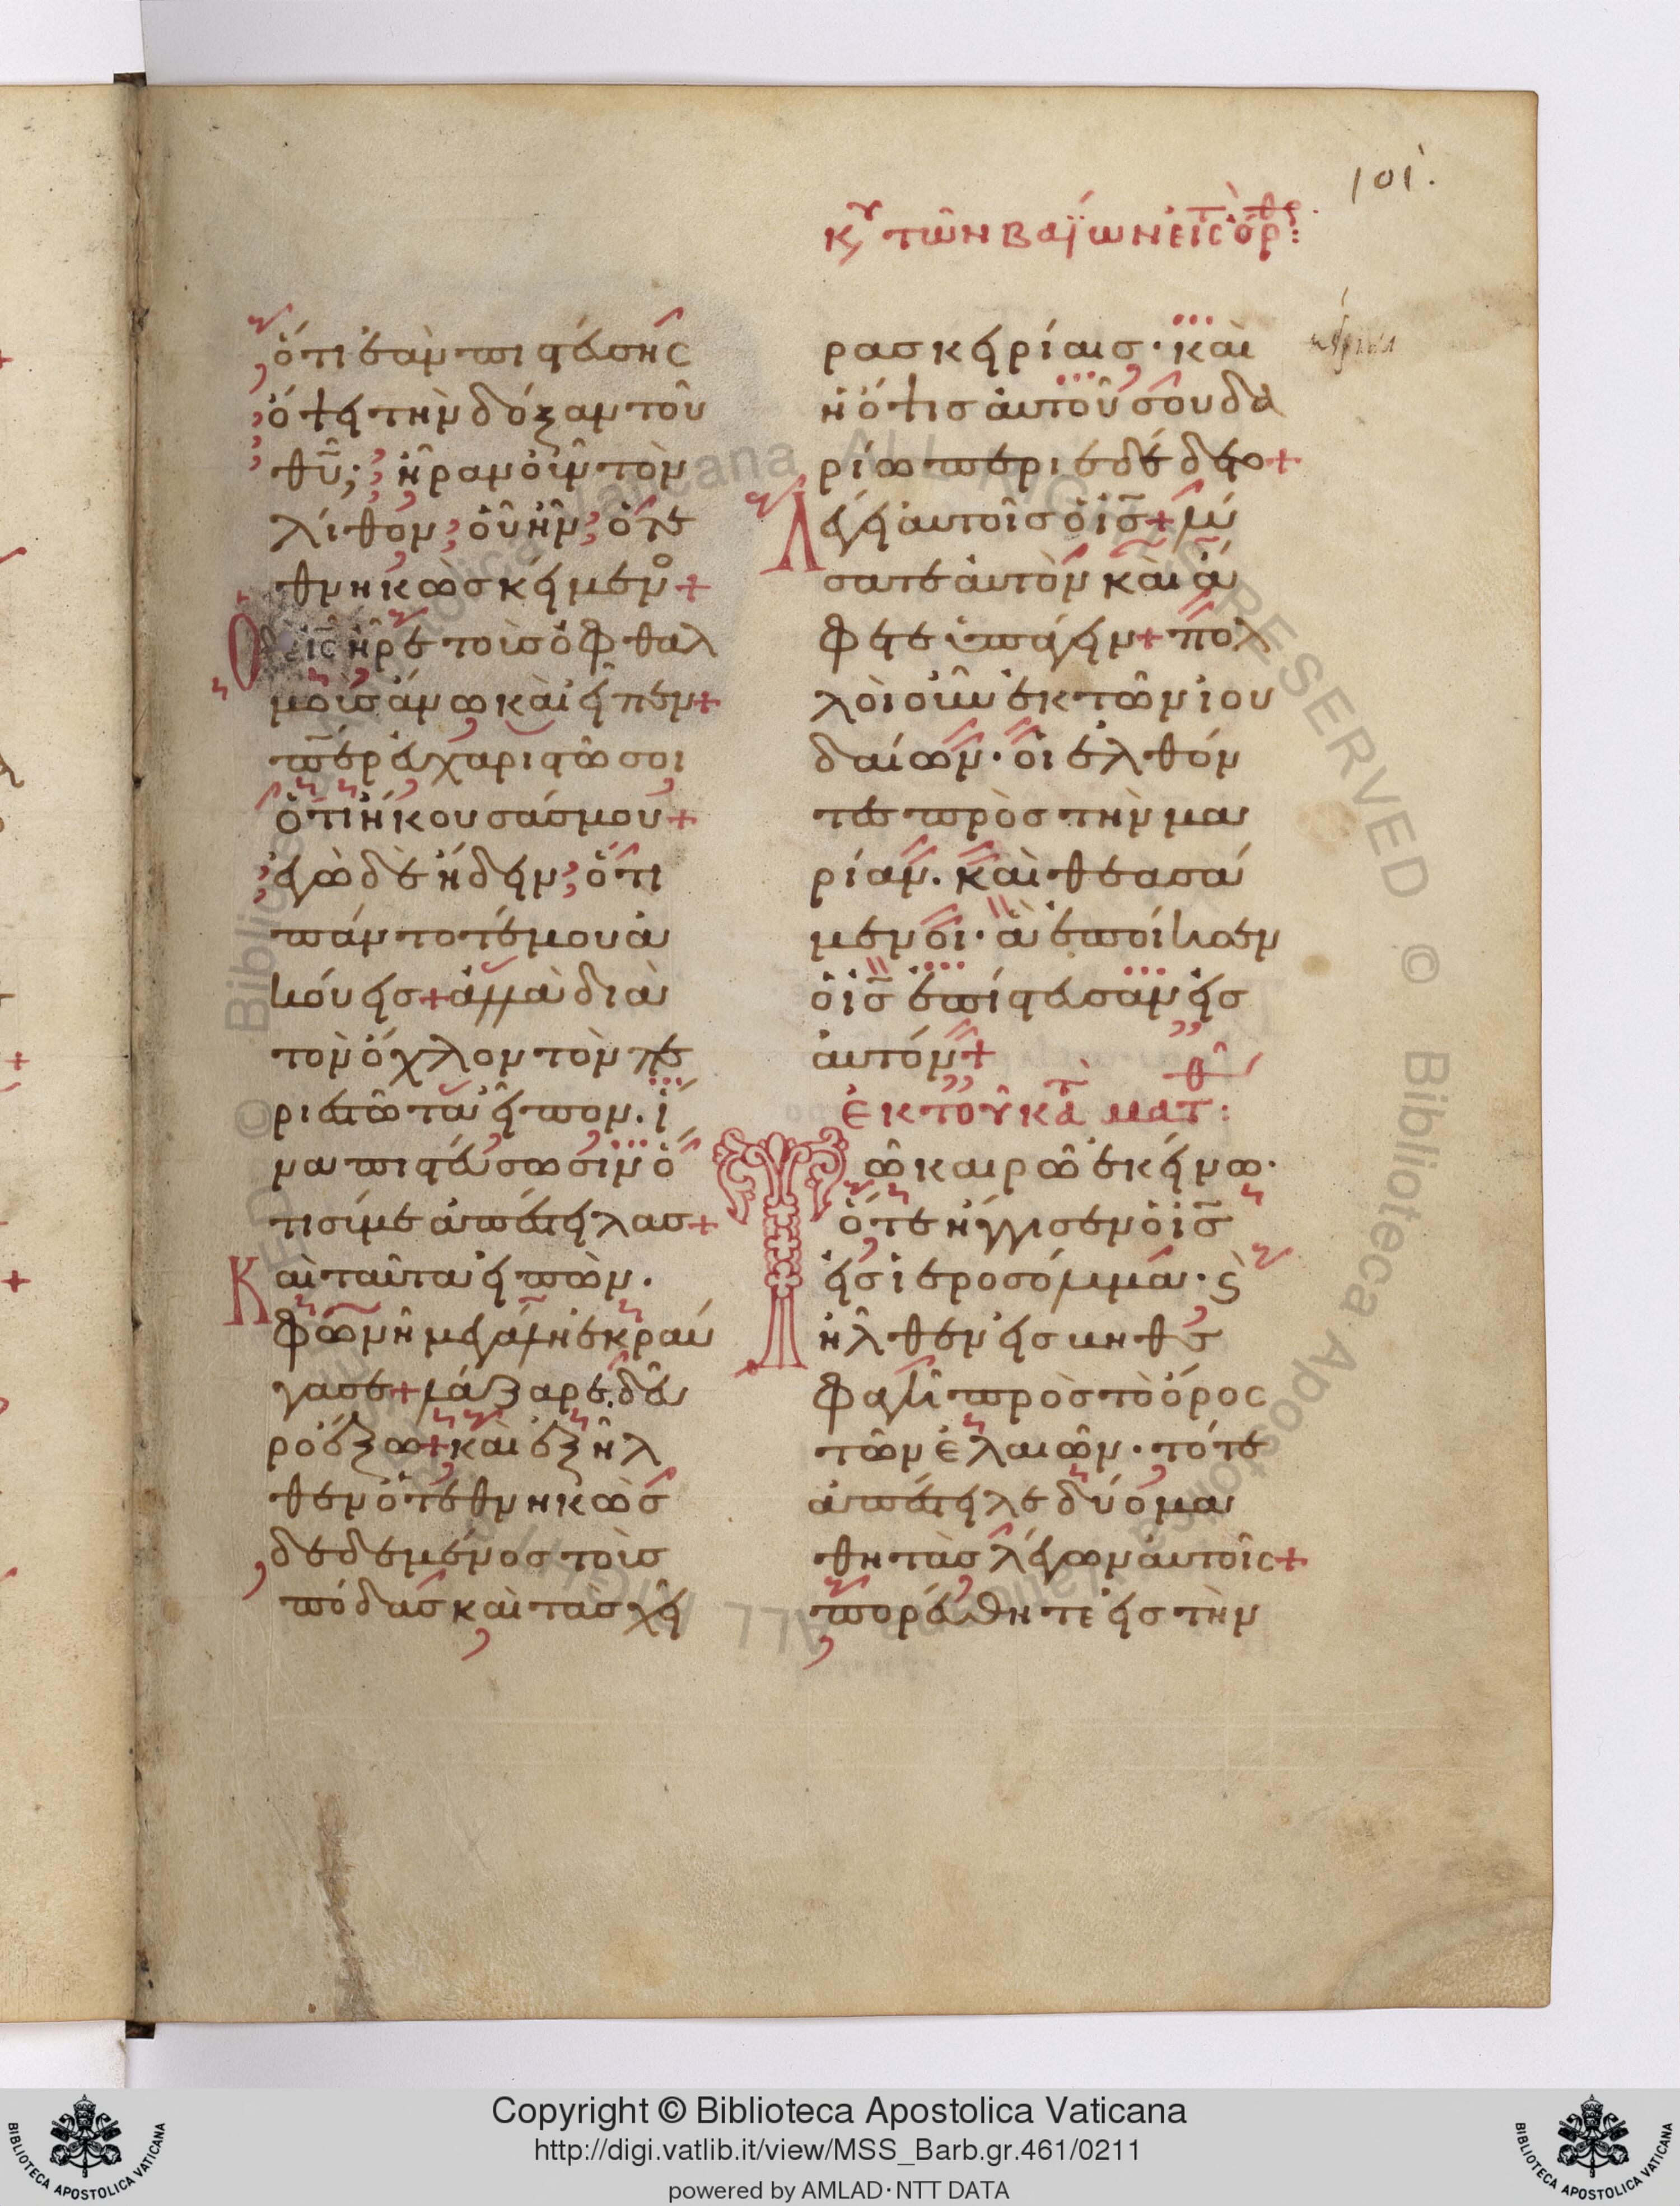 101.
Κυ τῶν βαΐων εἰς τ ὄρθρ:
ὅτι ἐὰν πιστεύσης
ὄψει τὴν δόξαν τοῦ
θῦ; ἦραν οὖν τὸν
λίθον; οὗ ἦν; ὁ τε
θνηκὼς κείμενο+
Ὁ δὲ ις ἦρε τοὺς ὀφθαλ
μοὺς ἄνω καὶ εἶπεν+
περ εὐχαριστῶ σοι
ὅτι ἤκουσάς μου+
ἐγὼ δὲ ἤδειν; ὅτι
πάντοτέ μου ἀ
κούεις+ ἀλλὰ διὰ
τὸν ὄχλον τὸν πε
ριεστῶτα εἶπον. ἵ
να πιστεύσωσιν ὅ
τι σύ με ἀπέστειλας+
Καὶ ταῦτα εἰπὼν.
φωνῆ μεγάλη ἐκραύ
γασε+ λάζαρε δεῦ
ρο ἔξω+ καὶ ἐξῆλ
θεν ὁ τεθνηκὼς
δεδεμένος τοὺς
πόδας καὶ τὰς χεῖ
ρας κειρίαις· καὶ
ἡ ὄψις αὐτοῦ σουδα
ρίω περιεδέδετο+
Λέγει αὐτοῖς ὁ ις+ λύ
σατε αὐτὸν καὶ ἄ
φετε ὑπάγειν+ πολ
λοὶ οὖν ἐκ τῶν ἰου
δαίων· οἱ ἐλθόν
τες πρὸς τὴν μα
ρίαν. καὶ θεασά
μενοι· ἃ ἐποίησεν
ὁ ις ἐπίστευσαν εἰς
αὐτόν+
ἐκ τοῦ κατὰ ματθ:
Τῶ καιρῶ ἐκείνω·
ὅτε ἤγγισεν ὁ ις
εἰς ἱεροσόλυμα· ϛ
ἦλθεν εἰς βηθσ
φαγῆ πρὸς τὸ ὄρος
τῶν ἐλαιῶν· τότε
ἀπέστειλε δύο μα
θητὰς λέγων αὐτοῖς+
πορεύθητε εἰς τὴν
Copyright © Biblioteca Apostolica Vaticana
http://digi.vatlib.it/view/MSS_Barb.gr.461/0211
powered by AMLAD·NTT DATA
BIBLIOTECA APOSTOLICA VATICANA
BIBLIOTECA APOSTOLICA VATICANA